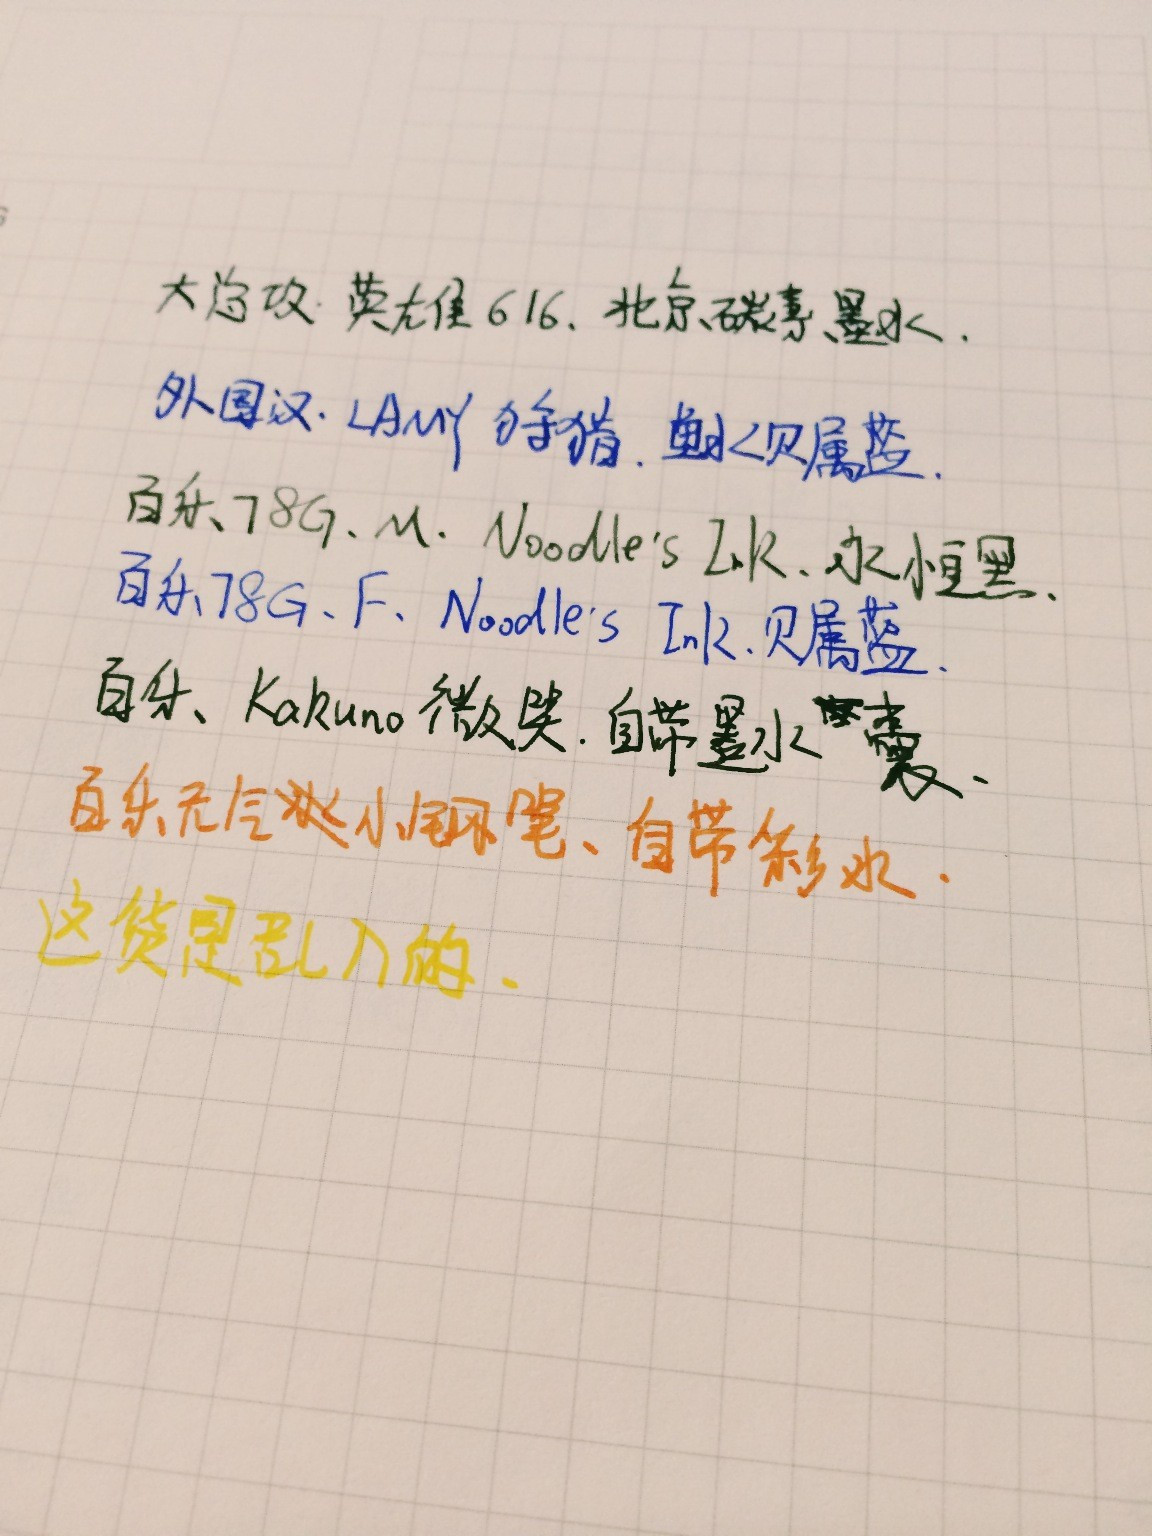 大总攻. 英雄616、北京、碳素、墨水.
外国汉. LAMY 狩猎. 鱼水贝属蓝.
百乐、78G、M. Noodle's Ink、永恒黑、
百乐78G、F、Noodle's Ink.贝属蓝.
百乐、Kakuno 微笑. 自带墨水囊、
百乐元气派小钢笔、自带彩水.
这货是乱入的.